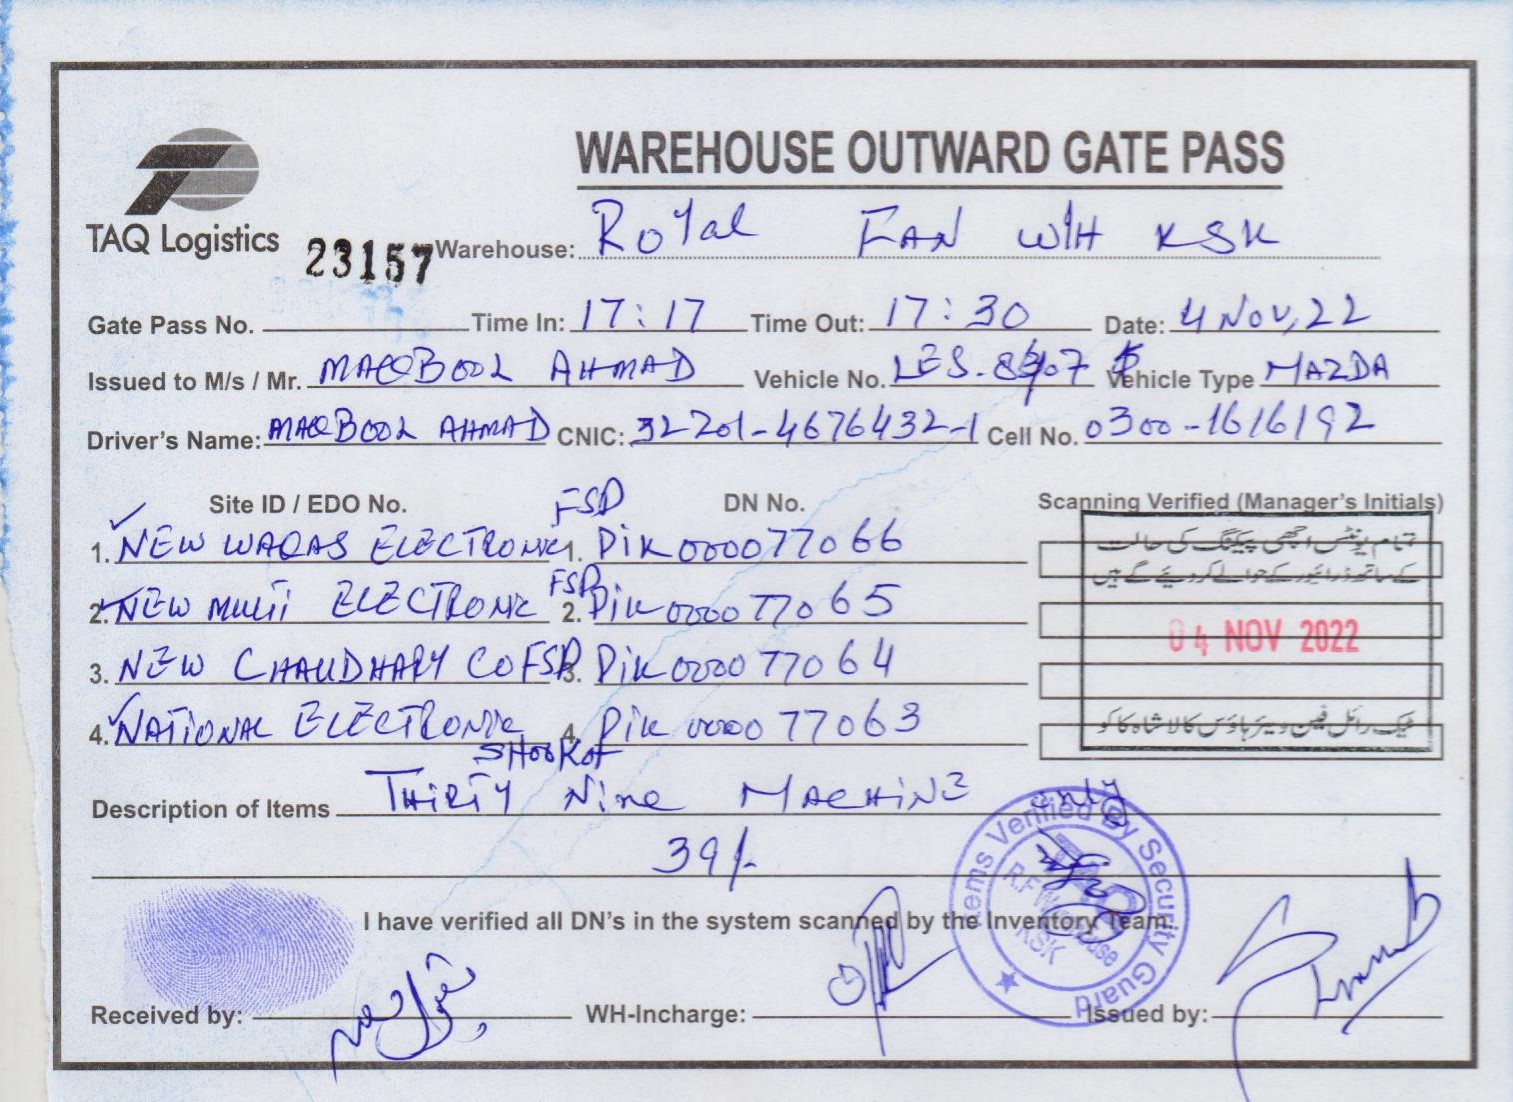 WAREHOUSE OUTWARD GATE PASS
TAQ Logistics
23157
Warehouse: Royal FAN W/H KSK
Gate Pass No. Time In: 17:17 Time Out: 17:30 Date: 4 Nov, 22
Issued to M/s / Mr. MAQBOOL AHMAD Vehicle No. LES. Vehicle Type MAZDA
Driver's Name: MAQBOOL AHMAD CNIC: 32201-4676432-1 Cell No. 0300-1616192
Site ID / EDO No. DN No. Scanning Verified (Manager's Initials)
1. NEW WAQAS ELECTRONIC FSD 1. Dik000077066
2. NEW MULTI ELECTRONIC FSD 2. Dik000077065
3. NEW CHAUDHARY CO FSD 3. Dik000077064
4. NATIONAL ELECTRONIC SHORKOT 4. Dik000077063
تمام یونٹس اچھی پیکنگ کی حالت
کے ساتھ ڈرائیور کے حوالے کر دیئے گئے ہیں
04 NOV 2022
ٹیک رائل فین ویئر ہاؤس کالا شاہ کاکو
Description of Items THIRTY Nine MACHINE only
39/-
Items Verified By Security Guard
R.F Warehouse
KSK
I have verified all DN's in the system scanned by the Inventory Team.
Received by: WH-Incharge: Issued by: